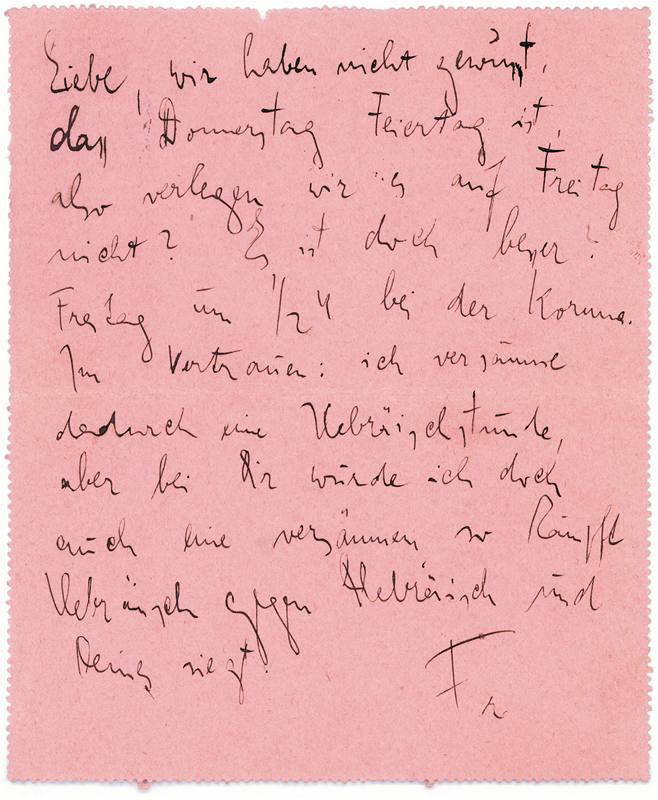 Liebe, wir haben nicht gewußt,
daß Donnerstag Feiertag ist,
also verlegen wir es auf Freitag
nicht? Es ist doch besser?
Freitag um 1/2 4 bei der Koruna.
Im Vertrauen: ich versäume
dadurch eine Hebräischstunde,
aber bei Dir würde ich doch
auch eine versäumen so kämpft
Hebräisch gegen Hebräisch und
Deines siegt.
Fr